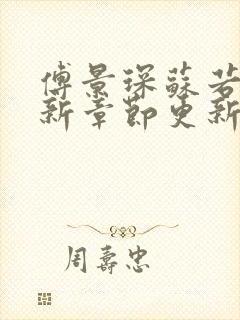 傅景琛蘇若
新章節更新
周壽忠